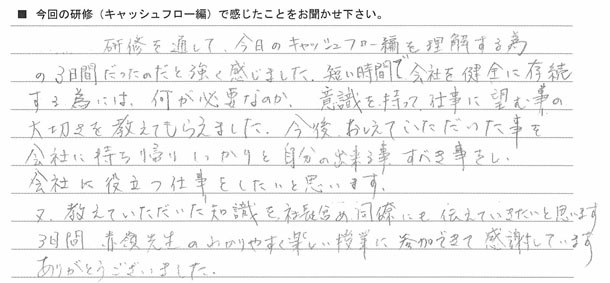 ■ 今回の研修（キャッシュフロー編）で感じたことをお聞かせ下さい。
研修を通して、今日のキャッシュフロー編を理解する為
の3日間だったのだと強く感じました。短い時間で会社を健全に存続
する為には、何が必要なのか、意識を持って仕事に望む事の
大切さを教えてもらえました。今後、おしえていただいた事を
会社に持ち帰りしっかりと自分の出来る事すべき事をし、
会社に役立つ仕事をしたいと思います。
又、教えていただいた知識を社長含め同僚にも伝えていきたいと思います
3日間、赤嶺先生のわかりやすく楽しい授業に参加できて感謝しています
ありがとうございました。